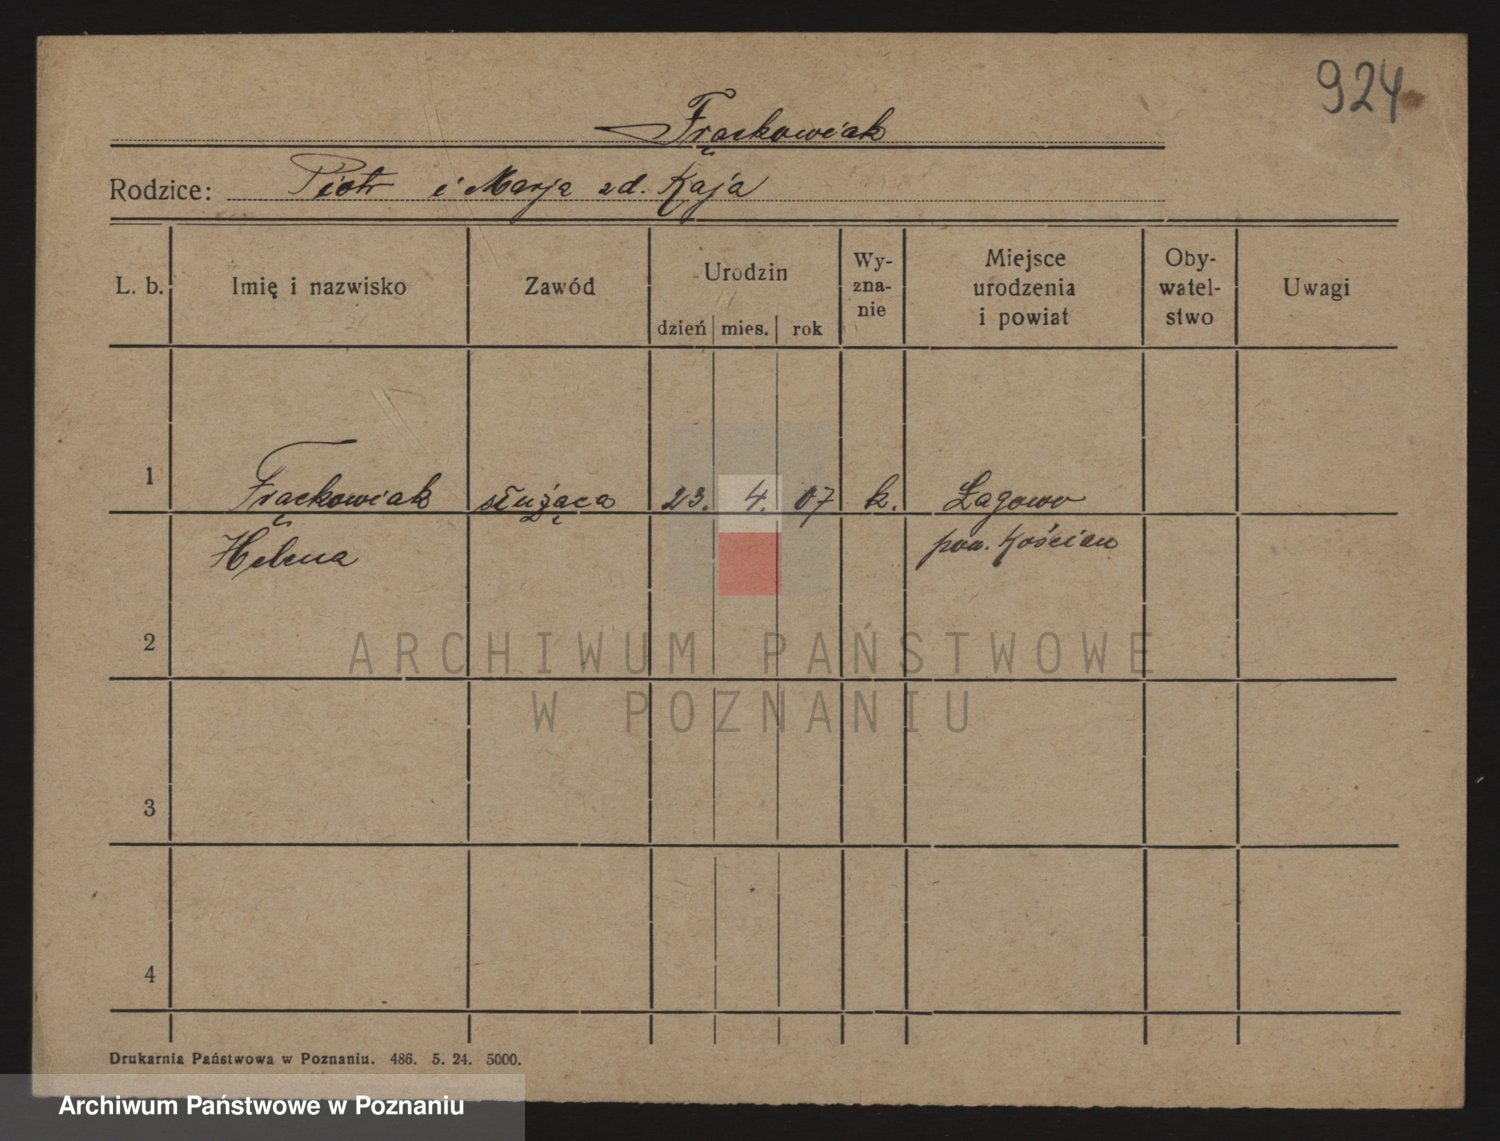 924
Frąckowiak
Rodzice: Piotr i Marja zd. Kaja
L. b. Imię i nazwisko Zawód Urodzin Wy- Miejsce Oby- Uwagi
zna- urodzenia watel-
nie i powiat stwo
dzień mies. rok
1 Frąckowiak służąca 23. 4. 07 k. Łagowo
Helena pow. Kościan
2
ARCHIWUM PAŃSTWOWE
W POZNANIU
3
4
Drukarnia Państwowa w Poznaniu. 486. 5. 24. 5000.
Archiwum Państwowe w Poznaniu